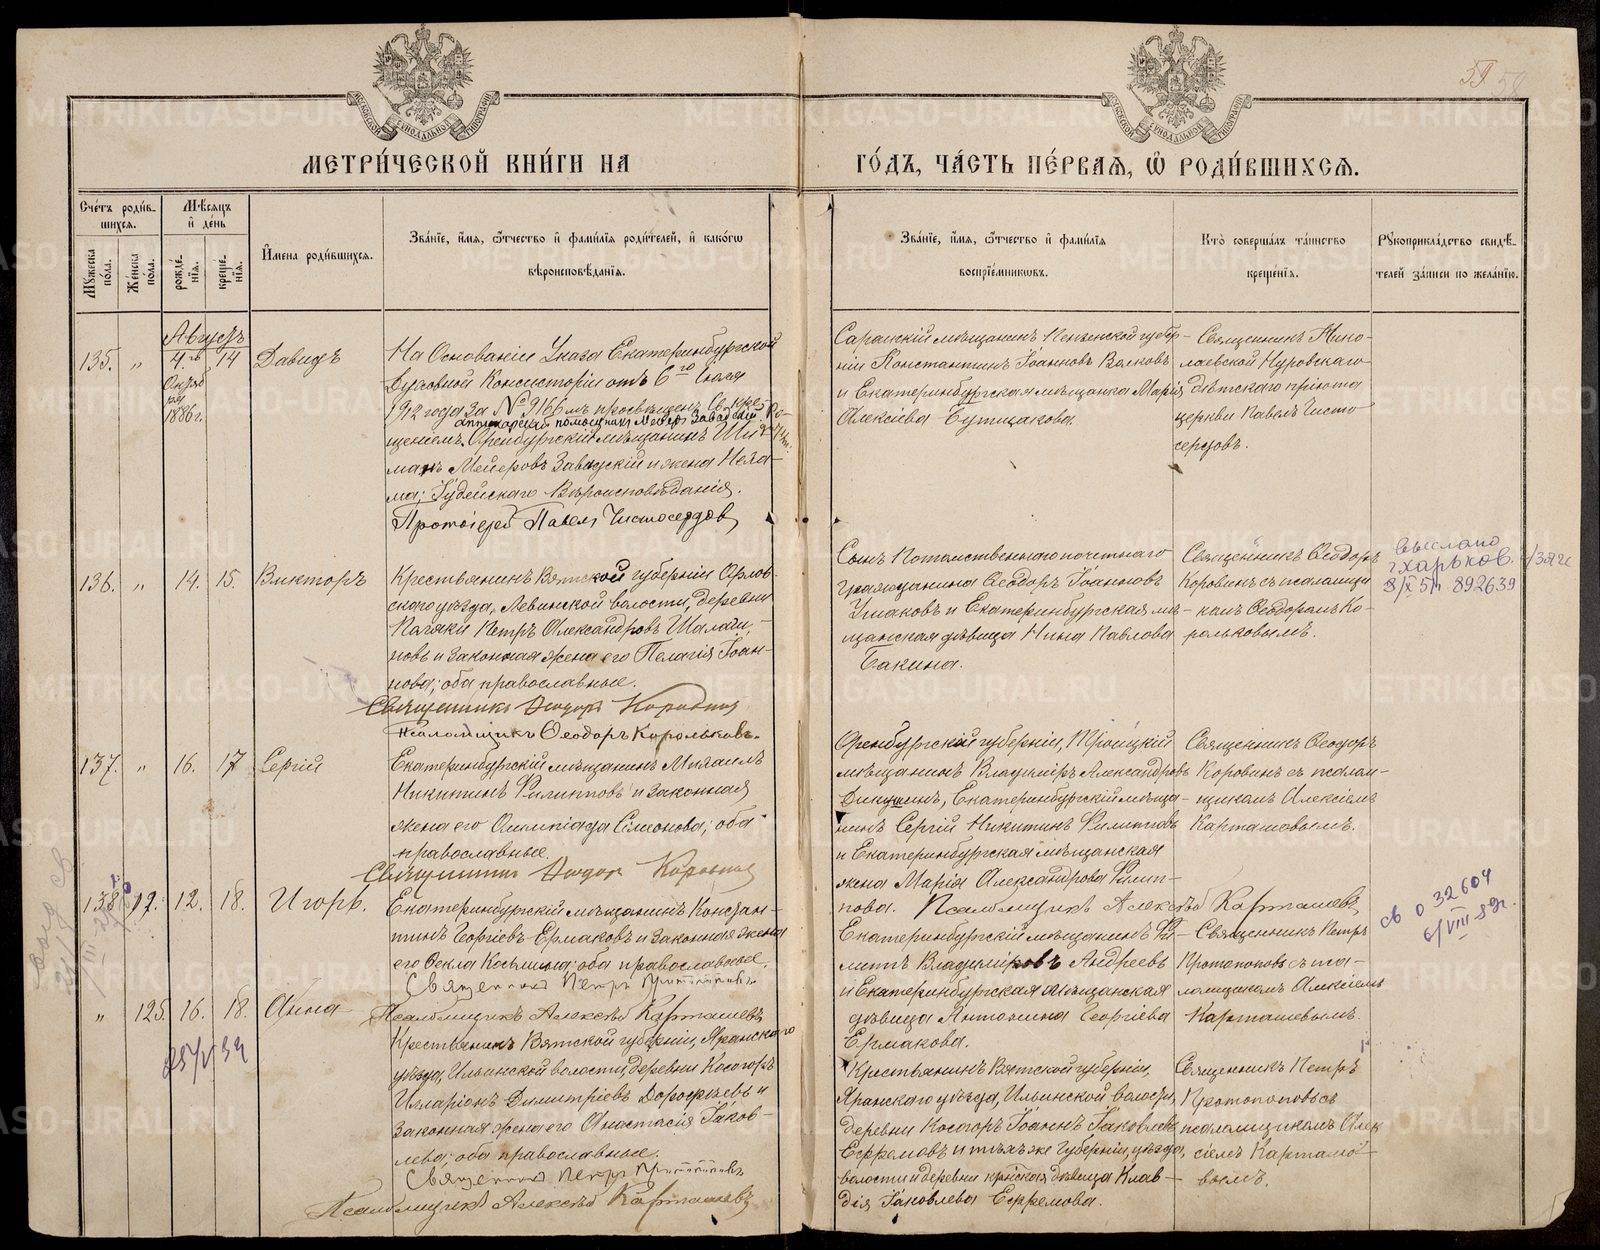 59 58
МЕТРИ́ЧЕСКОЙ КНИ́ГИ НА
ГО́ДЪ, ЧА́СТЬ ПЕ́РВАЯ, Ѡ РОДИ́ВШИХСѦ.
Сче́тъ роди́в-
шихсѧ.
Мѣ́сѧцъ
и҆ де́нь
Мꙋ́жеска по́ла.
Же́нска по́ла.
рожде́-
нїѧ.
креще́-
нїѧ.
И҆мена роди́вшихсѧ.
Зва́нїе, и҆́мѧ, ѻ҆́тчество и҆ фами́лїѧ роди́телей, и҆ како́гѡ
вѣроисповѣ́данїѧ.
Зва́нїе, и҆́мѧ, ѻ҆́тчество и҆ фами́лїѧ
воспрїе́мникѡвъ.
Кто̀ соверша́лъ та́инство
креще́нїѧ.
Рꙋкоприкла́дство свидѣ́-
телей за́писи по жела́нїю.
Августъ
135. „ 4.го 14 Давидъ
1886г.
На Основаніи Указа Екатеринбургской
Духовной Консисторіи отъ 6го Іюля
1912 года за № 9166 мъ просвѣщенъ Св. Кре-
аптекарскій помощникъ Мееръ Завадскій
щеніемъ Оренбургскій мѣщанинъ Ши-
манъ Мейеровъ Завадскій и жена Неха-
ма; Іудейскаго Вѣроисповѣданія.
Протоіерей Павелъ Чистосердовъ
Саранскій мѣщанинъ Пензенской губер-
ніи Константинъ Іоанновъ Валковъ
и Екатеринбургская мѣщанка Марія
Алексіева Бутикакова.
Священникъ Нико-
лаевской Нуровскаго
дѣтскаго пріюта
церкви Павелъ Чисто-
сердовъ.
136. „ 14. 15. Викторъ
Крестьянинъ Вятской губерніи Орлов-
скаго уѣзда, Левинской волости, деревни
Петръ Александровъ Шалаги-
новъ и законная жена его Пелагія Іоан-
нова; оба православные.
Священникъ Ѳеодоръ Коровинъ
Псаломщикъ Ѳеодоръ Корольковъ.
Сынъ Потомственнаго почетнаго
гражданина Ѳеодоръ Іоанновъ
Ушаковъ и Екатеринбургская мѣ-
щанская дѣвица Нина Павлова
Бакина.
Священникъ Ѳеодоръ
Коровинъ съ псаломщи-
комъ Ѳеодоромъ Ко-
рольковымъ.
выслано
г. Харьков.
8/X 51 892639
137. „ 16. 17 Сергій
Екатеринбургскій мѣщанинъ Михаилъ
Никитинъ Филипповъ и законная
жена его Олимпіада Симонова; оба
православные.
Священникъ Ѳеодоръ Коровинъ
Оренбургской губерніи, Троицкій
мѣщанинъ Владиміръ Александровъ
Дикушинъ, Екатеринбургскій мѣща-
нинъ Сергій Никитинъ Филипповъ
и Екатеринбургская мѣщанская
жена Марія Александрова Филип-
пова. Псаломщикъ Алексѣй Карташевъ
Священникъ Ѳеодоръ
Коровинъ съ псалом-
щикомъ Алексіемъ
Карташовымъ.
138. 12. 18. Игорь.
Екатеринбургскій мѣщанинъ Констан-
тинъ Георгіевъ Ермаковъ и законная жена
его Ѳекла Косьмина; оба православные.
Священникъ Петръ Протопоповъ
Псаломщикъ Алексѣй Карташевъ
Екатеринбургскій мѣщанинъ Фи-
липпъ Владиміровъ Андреевъ
и Екатеринбургская мѣщанская
дѣвица Антонина Георгіева
Ермакова.
Священникъ Петръ
Протопоповъ съ пса-
ломщикомъ Алексіемъ
Карташевымъ.
св 032604
6/VIII 89г.
„ 125. 16. 18. Анна
25/V 39
Крестьянинъ Вятской губерніи, Яранскаго
уѣзда, Ильинской волости, деревни Косогоръ
Илларіонъ Димитріевъ Дорофѣевъ и
законная жена его Анастасія Іаков-
лева; оба православные.
Священникъ Петръ Протопоповъ
Псаломщикъ Алексѣй Карташевъ
Крестьянинъ Вятской губерніи,
Яранскаго уѣзда, Ильинской волости,
деревни Косогоръ Іоаннъ Іаковлевъ
Ефремовъ и тѣхъ же губерніи, уѣзда,
волости и деревни крестьянская дѣвица Клав-
дія Іаковлева Ефремова.
Священникъ Петръ
Протопоповъ съ
псаломщикомъ Алек-
сіемъ Карташо-
вымъ.